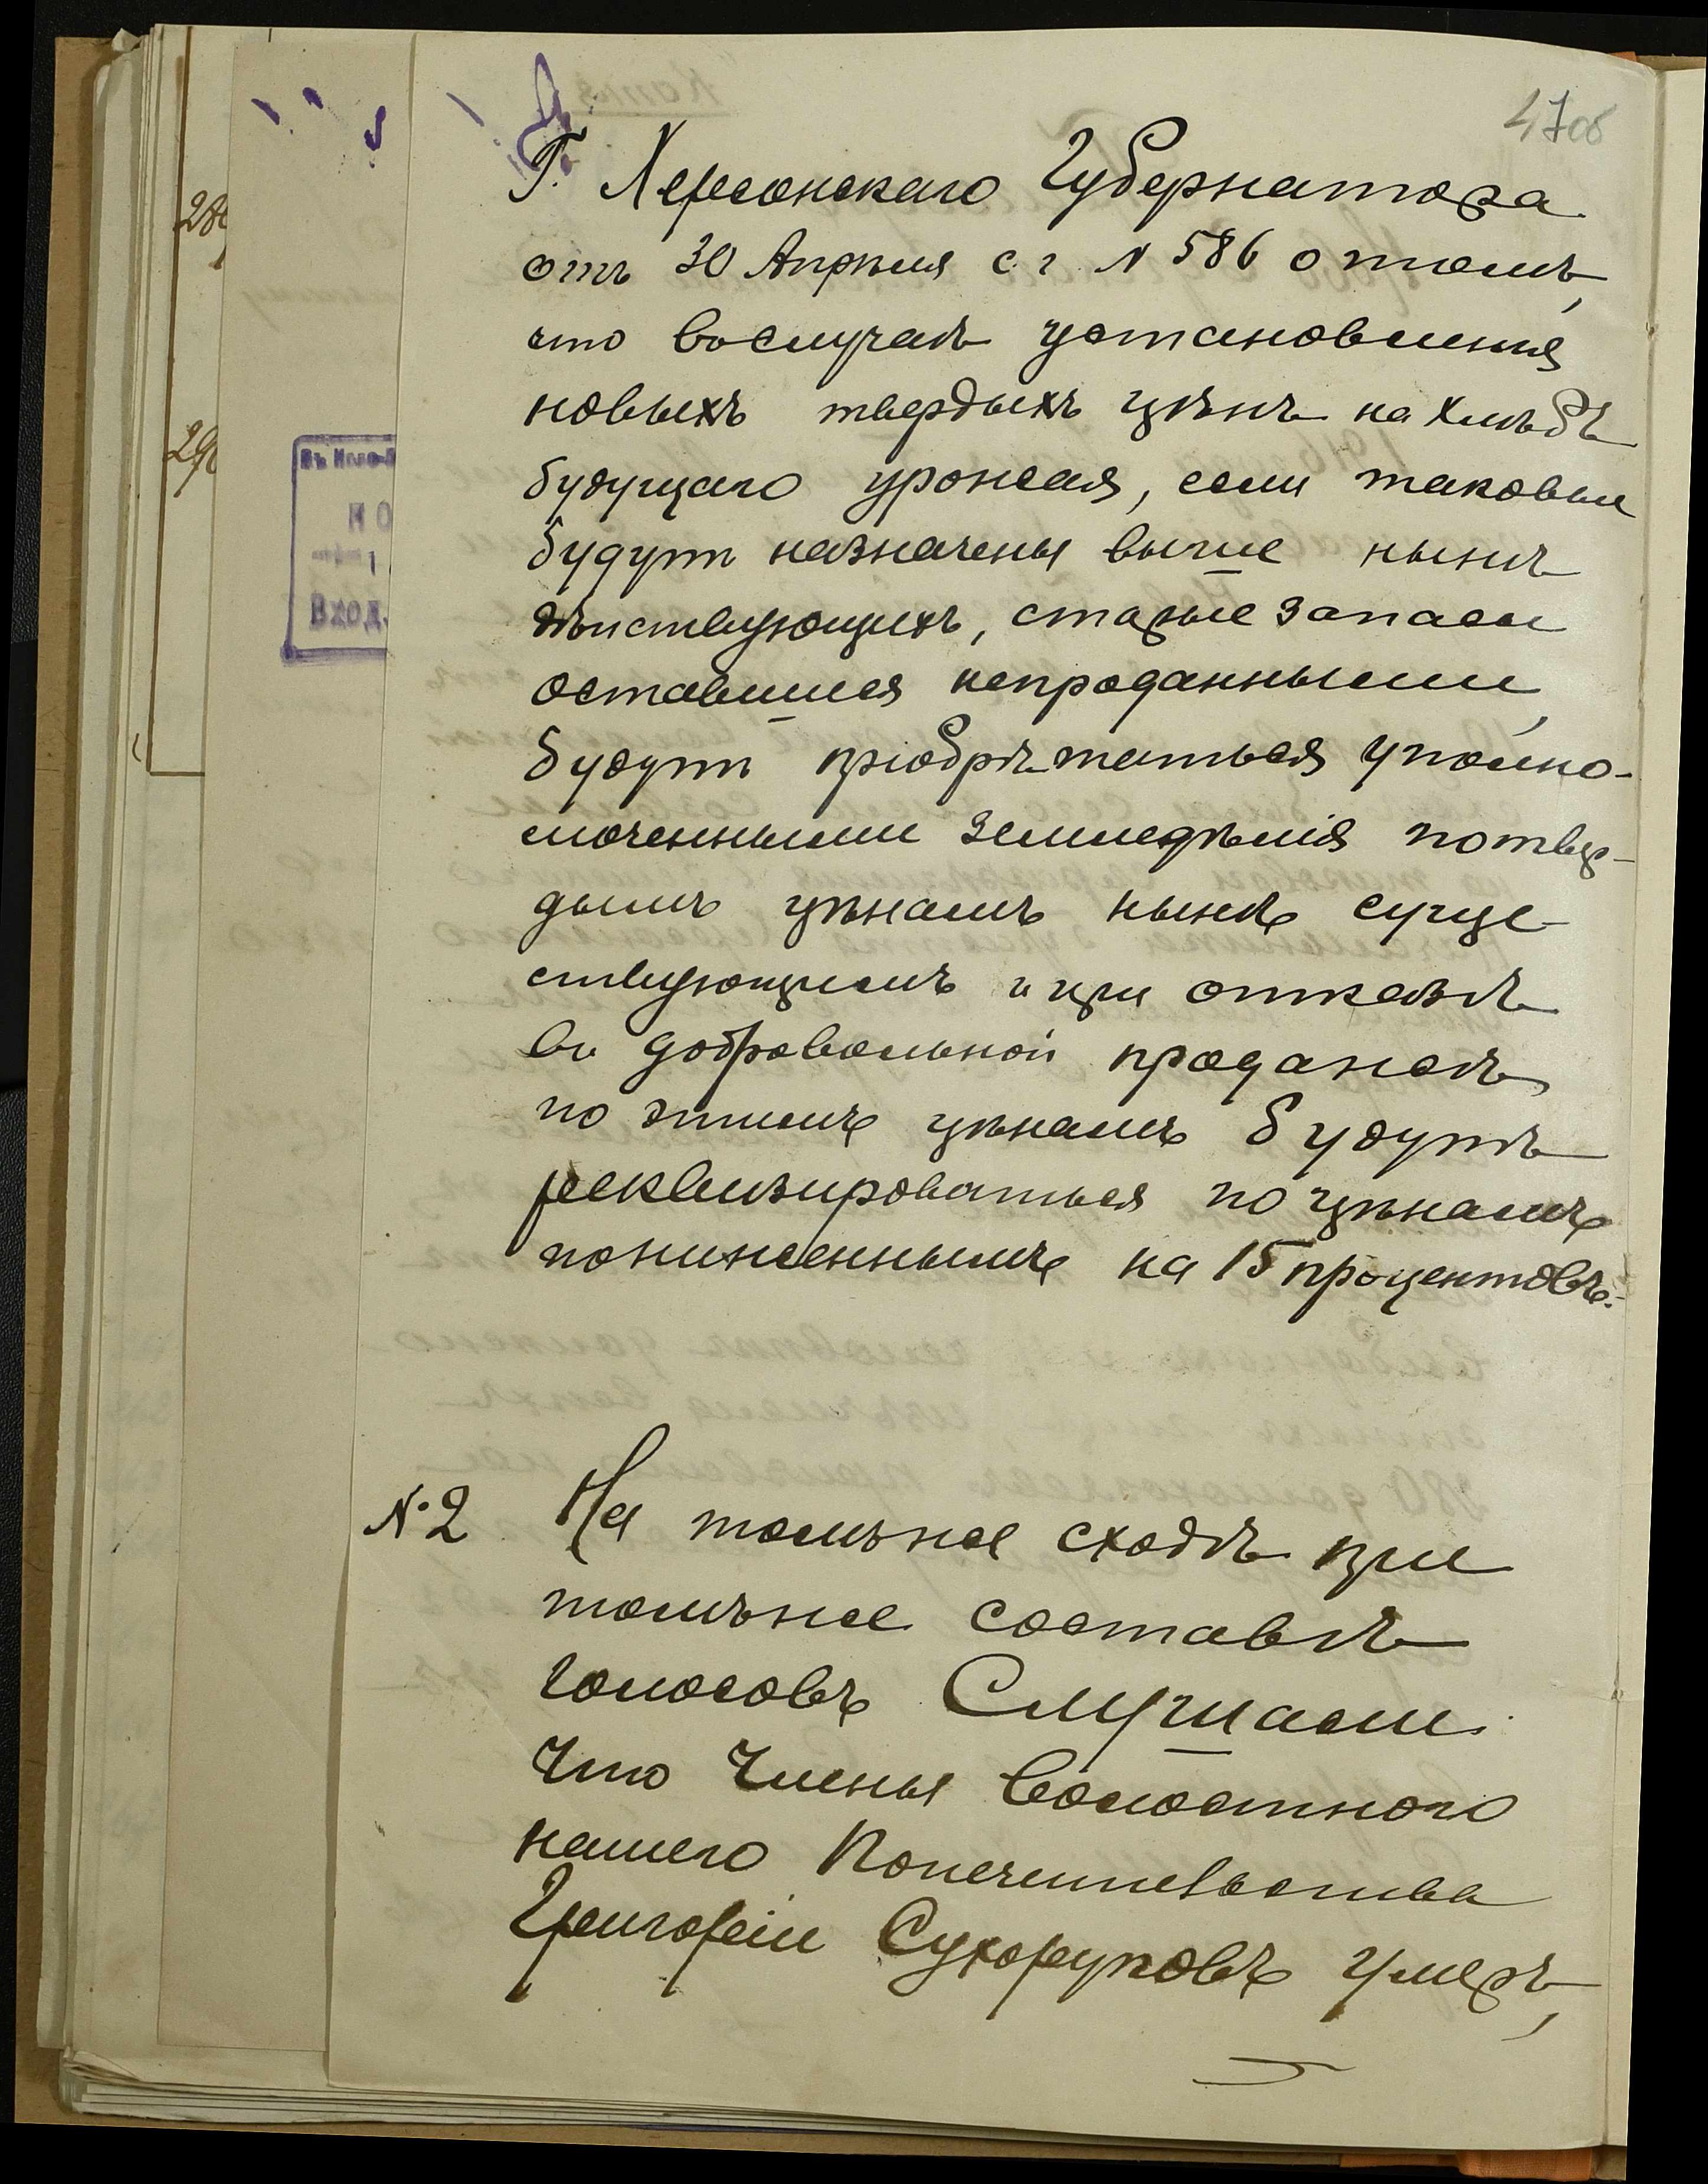 47об
Г. Херсонскаго Губернатора
отъ 30 Апрѣля с. г. № 586 о томъ,
что въ случаѣ установленія
новыхъ твердыхъ цѣнъ на хлѣбъ
будущаго урожая, если таковыя
будутъ назначены выше нынѣ
дѣйствующихъ, старые запасы
оставшіеся непроданными,
будутъ пріобрѣтаться уполно-
моченными земледѣлія по твер-
дымъ цѣнамъ нынѣ суще-
ствующимъ и при отказѣ
въ добровольной продажѣ
по этимъ цѣнамъ будутъ
реквизироваться по цѣнамъ
пониженнымъ на 15 процентовъ.
№ 2 На томъ же сходѣ при
томъ же составѣ
голосовъ Слушали:
Что Члены Волостного
нашего Попечительства
Григорій Сухоруковъ умеръ,
286
290
Въ Ново-
Вход.